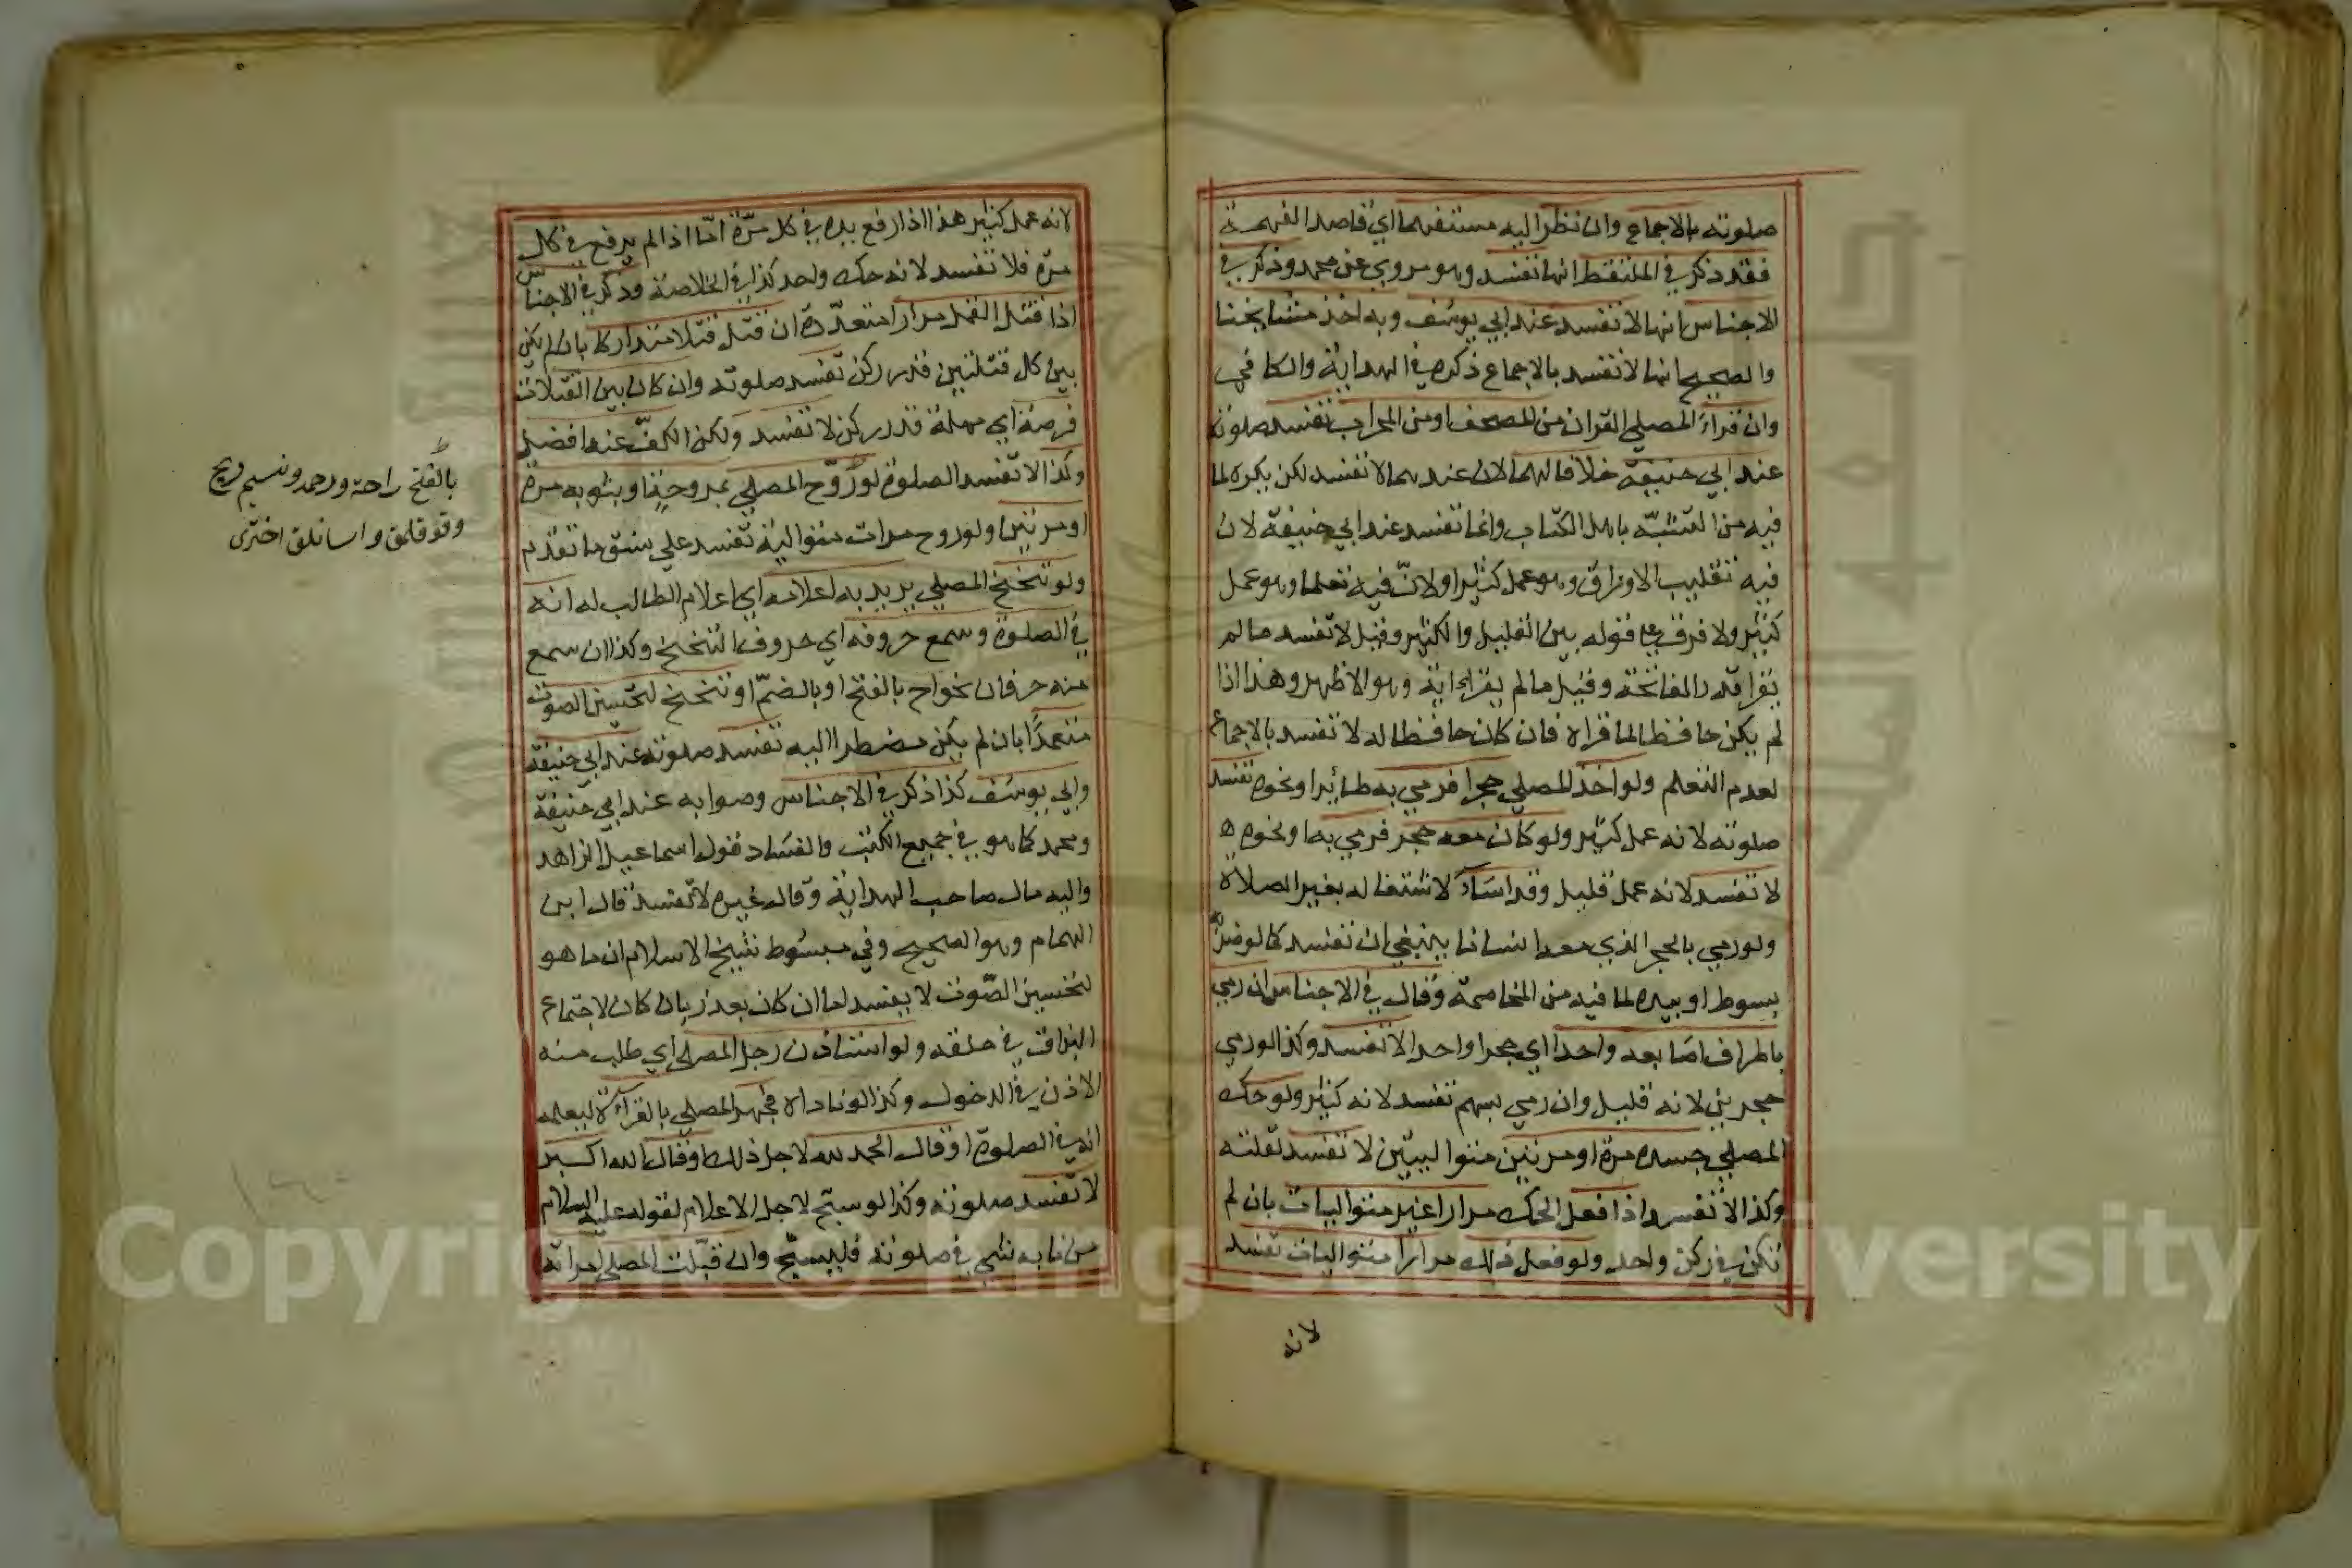 صلوته بالاجماع وان نظر اليه مستفهما اي قاصدا لفهمه
فقد ذكر في الملتقط انها تفسد وهو مروي عن محمد وذكر في
الاجناس انها لا تفسد عند ابي يوسف وبه اخذ مشايخنا
والصحيح انها لا تفسد بالاجماع ذكره في الهداية والكافي
وان قراء المصلي القران من المصحف او من المحراب تفسد صلوته
عند ابي حنيفة خلافا لهما لان عندهما لا تفسد لكن يكره لما
فيه من التشبّه باهل الكتاب وانما تفسد عند ابي حنيفة لان
فيه تقليب الاوراق وهو عمل كثير اولانّ فيه تعلما وهو عمل
كثير ولا فرق في قوله بين القليل والكثير وقيل لا تفسد ما لم
يقرا قدر الفاتحة وقيل ما لم يقرا اية وهو الاظهر وهذا اذا
لم يكن حافظا لما قراه فان كان حافظا له لا تفسد بالاجماع
لعدم التعلم ولو اخذ المصلي حجرا فرمي به طائرا ونحوه تفسد
صلوته لانه عمل كثير ولو كان معه حجر فرمي به او نحوه
لا تفسد لانه عمل قليل وقد اساء لاشتغاله بغير الصلاة
ولو رمي بالحجر الذي معه انسانا ينبغي ان تفسد كما لو ضربه
بسوط او بيده لما فيه من المخاصمة وقال في الاجناس ان رمي
باطراف اصابعه واحدا اي حجرا واحدا لا تفسد وكذا لو رمي
حجرين لانه قليل وان رمي بسهم تفسد لانه كثير ولو حك
المصلي جسده مرة او مرتين متواليتين لا تفسد لقلته
وكذا لا تفسد اذا فعل الحك مرارا غير متواليات بان لم
تكن في ركن واحد ولو فعل ذلك مرارا متواليات تفسد
لانه
لانه عمل كثير هذا اذا رفع يده في كل مرّة امّا اذا لم يرفع في كل
مرّة فلا تفسد لانه حك واحد كذا في الخلاصة وذكر في الاجناس
اذا قتل القمل مرارا متعدّدة ان قتل قتلا متداركا بان لم يكن
بين كل قتلتين قدر ركن تفسد صلوته وان كان بين القتلات
فرصة اي مهلة قدر ركن لا تفسد ولكن الكفّ عنه افضل
وكذا لا تفسد الصلوة لو روّح المصلي بمروحة او بثوبه مرة
او مرتين ولو روح مرات متوالية تفسد علي نسق ما تقدم
ولو تنحنح المصلي يريد به اعلامه اي اعلام الطالب له انه
في الصلوة وسمع حروفه اي حروف التنحنح وكذا ان سمع
منه حرفان نحو اح بالفتح او بالضمّ او تنحنح لتحسين الصوت
متعمدًا بان لم يكن مضطرا اليه تفسد صلوته عند ابي حنيفة
وابي يوسف كذا ذكر في الاجناس وصوابه عند ابي حنيفة
ومحمد كما هو في جميع الكتب والفساد قول اسماعيل الزاهد
واليه مال صاحب الهداية وقال غيره لا تفسد قال ابن
الهمام وهو الصحيح وفي مبسوط شيخ الاسلام ان ما هو
لتحسين الصّوت لا يفسد اما ان كان بعذر بان كان لاجتماع
البزاق في حلقه ولو استاذن رجل المصلي اي طلب منه
الاذن في الدخول وكذا لو ناداه فجهر المصلي بالقرائة ليعلمه
انه في الصلوة او قال الحمد لله لاجل ذلك او قال الله اكبر
لا تفسد صلوته وكذا لو سبّح لاجل الاعلام لقوله عليه السلام
من نابه شي في صلوته فليسبّح وان قبّلت المصلي امراته
بالفتح راحة ورحمه ونسيم ريح
اخترى
Copyright © King Saud University